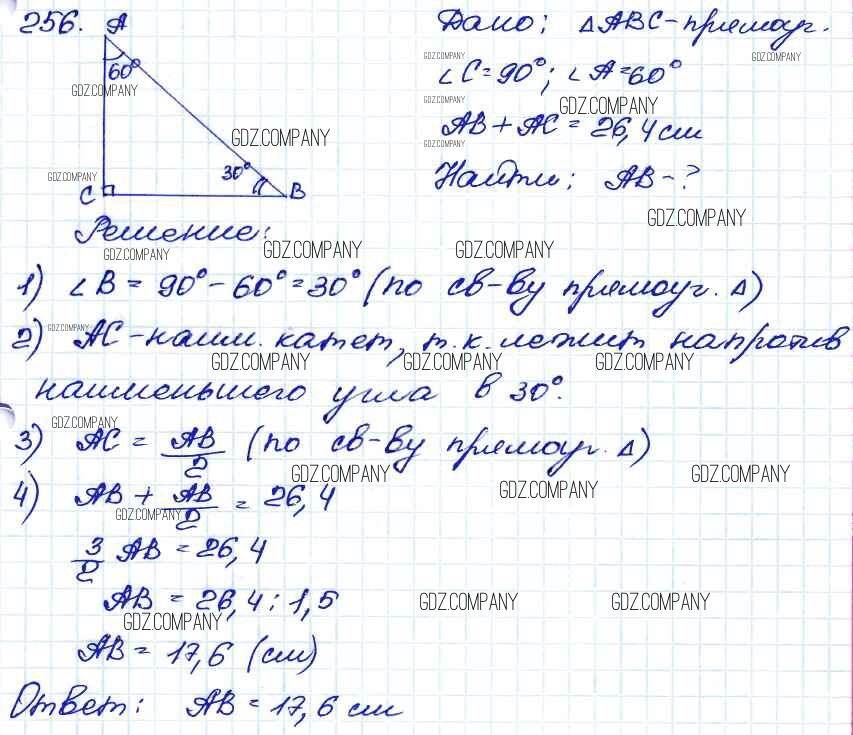 256. A
60°
30°
C B
Дано: ΔABC-прямоуг.
∠C=90°; ∠A=60°
AB+AC=26,4см
Найти: AB-?
GDZ.COMPANY
GDZ.COMPANY
GDZ.COMPANY
GDZ.COMPANY
GDZ.COMPANY
GDZ.COMPANY
GDZ.COMPANY
GDZ.COMPANY
GDZ.COMPANY
Решение:
GDZ.COMPANY GDZ.COMPANY GDZ.COMPANY
1) ∠B = 90°-60°=30° (по св-ву прямоуг. Δ)
GDZ.COMPANY
2) AC-наим. катет, т.к. лежит напротив
GDZ.COMPANY GDZ.COMPANY GDZ.COMPANY
наименьшего угла в 30°.
GDZ.COMPANY
3) AC = AB/2 (по св-ву прямоуг. Δ)
GDZ.COMPANY GDZ.COMPANY GDZ.COMPANY
4) AB + AB/2 = 26,4
GDZ.COMPANY
3/2 AB = 26,4
AB = 26,4 : 1,5
GDZ.COMPANY GDZ.COMPANY GDZ.COMPANY
AB = 17,6 (см)
Ответ: AB = 17,6 см